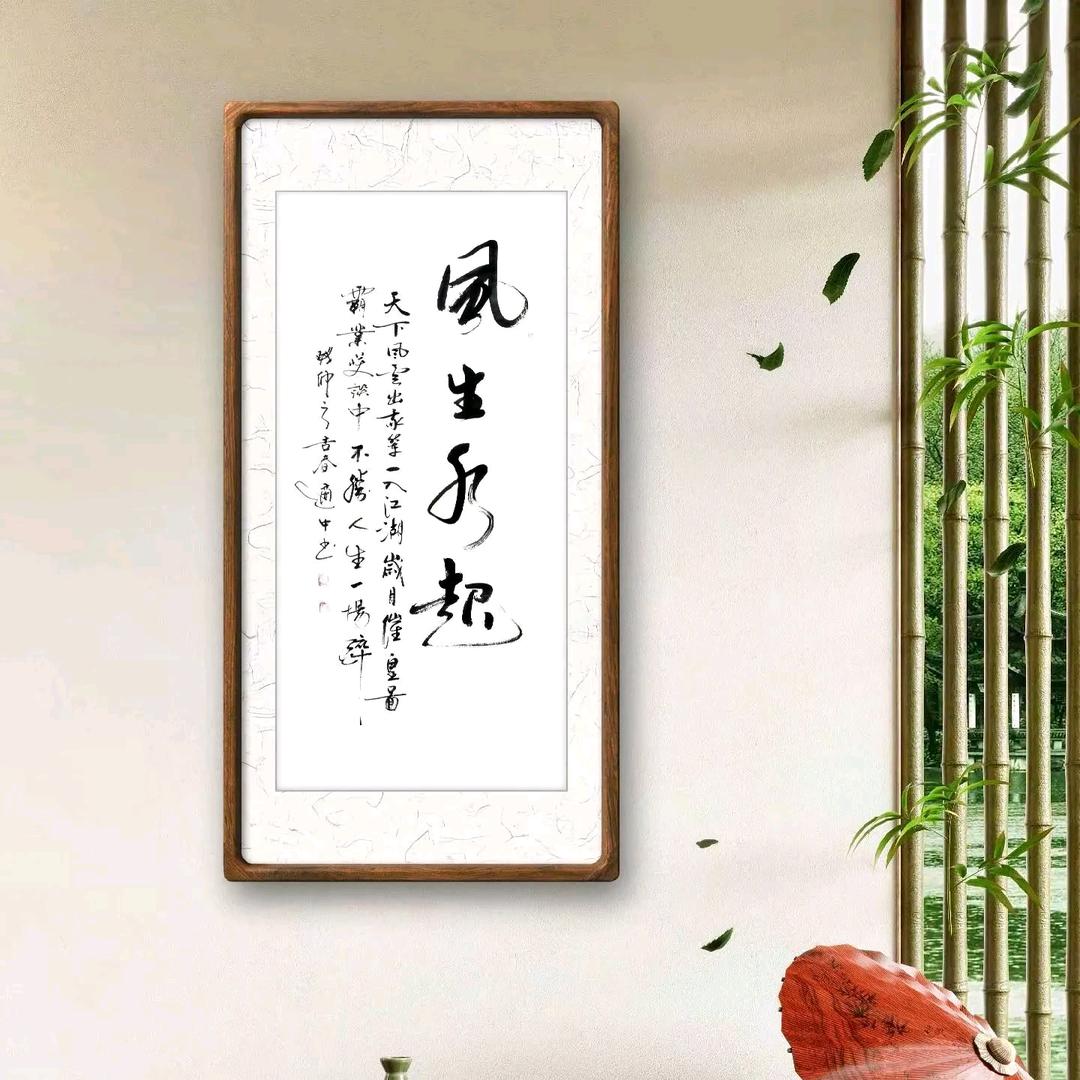 風生水起
天下風雲出我輩一入江湖歲月催皇圖
霸業笑談中不勝人生一場醉
吉春適中书